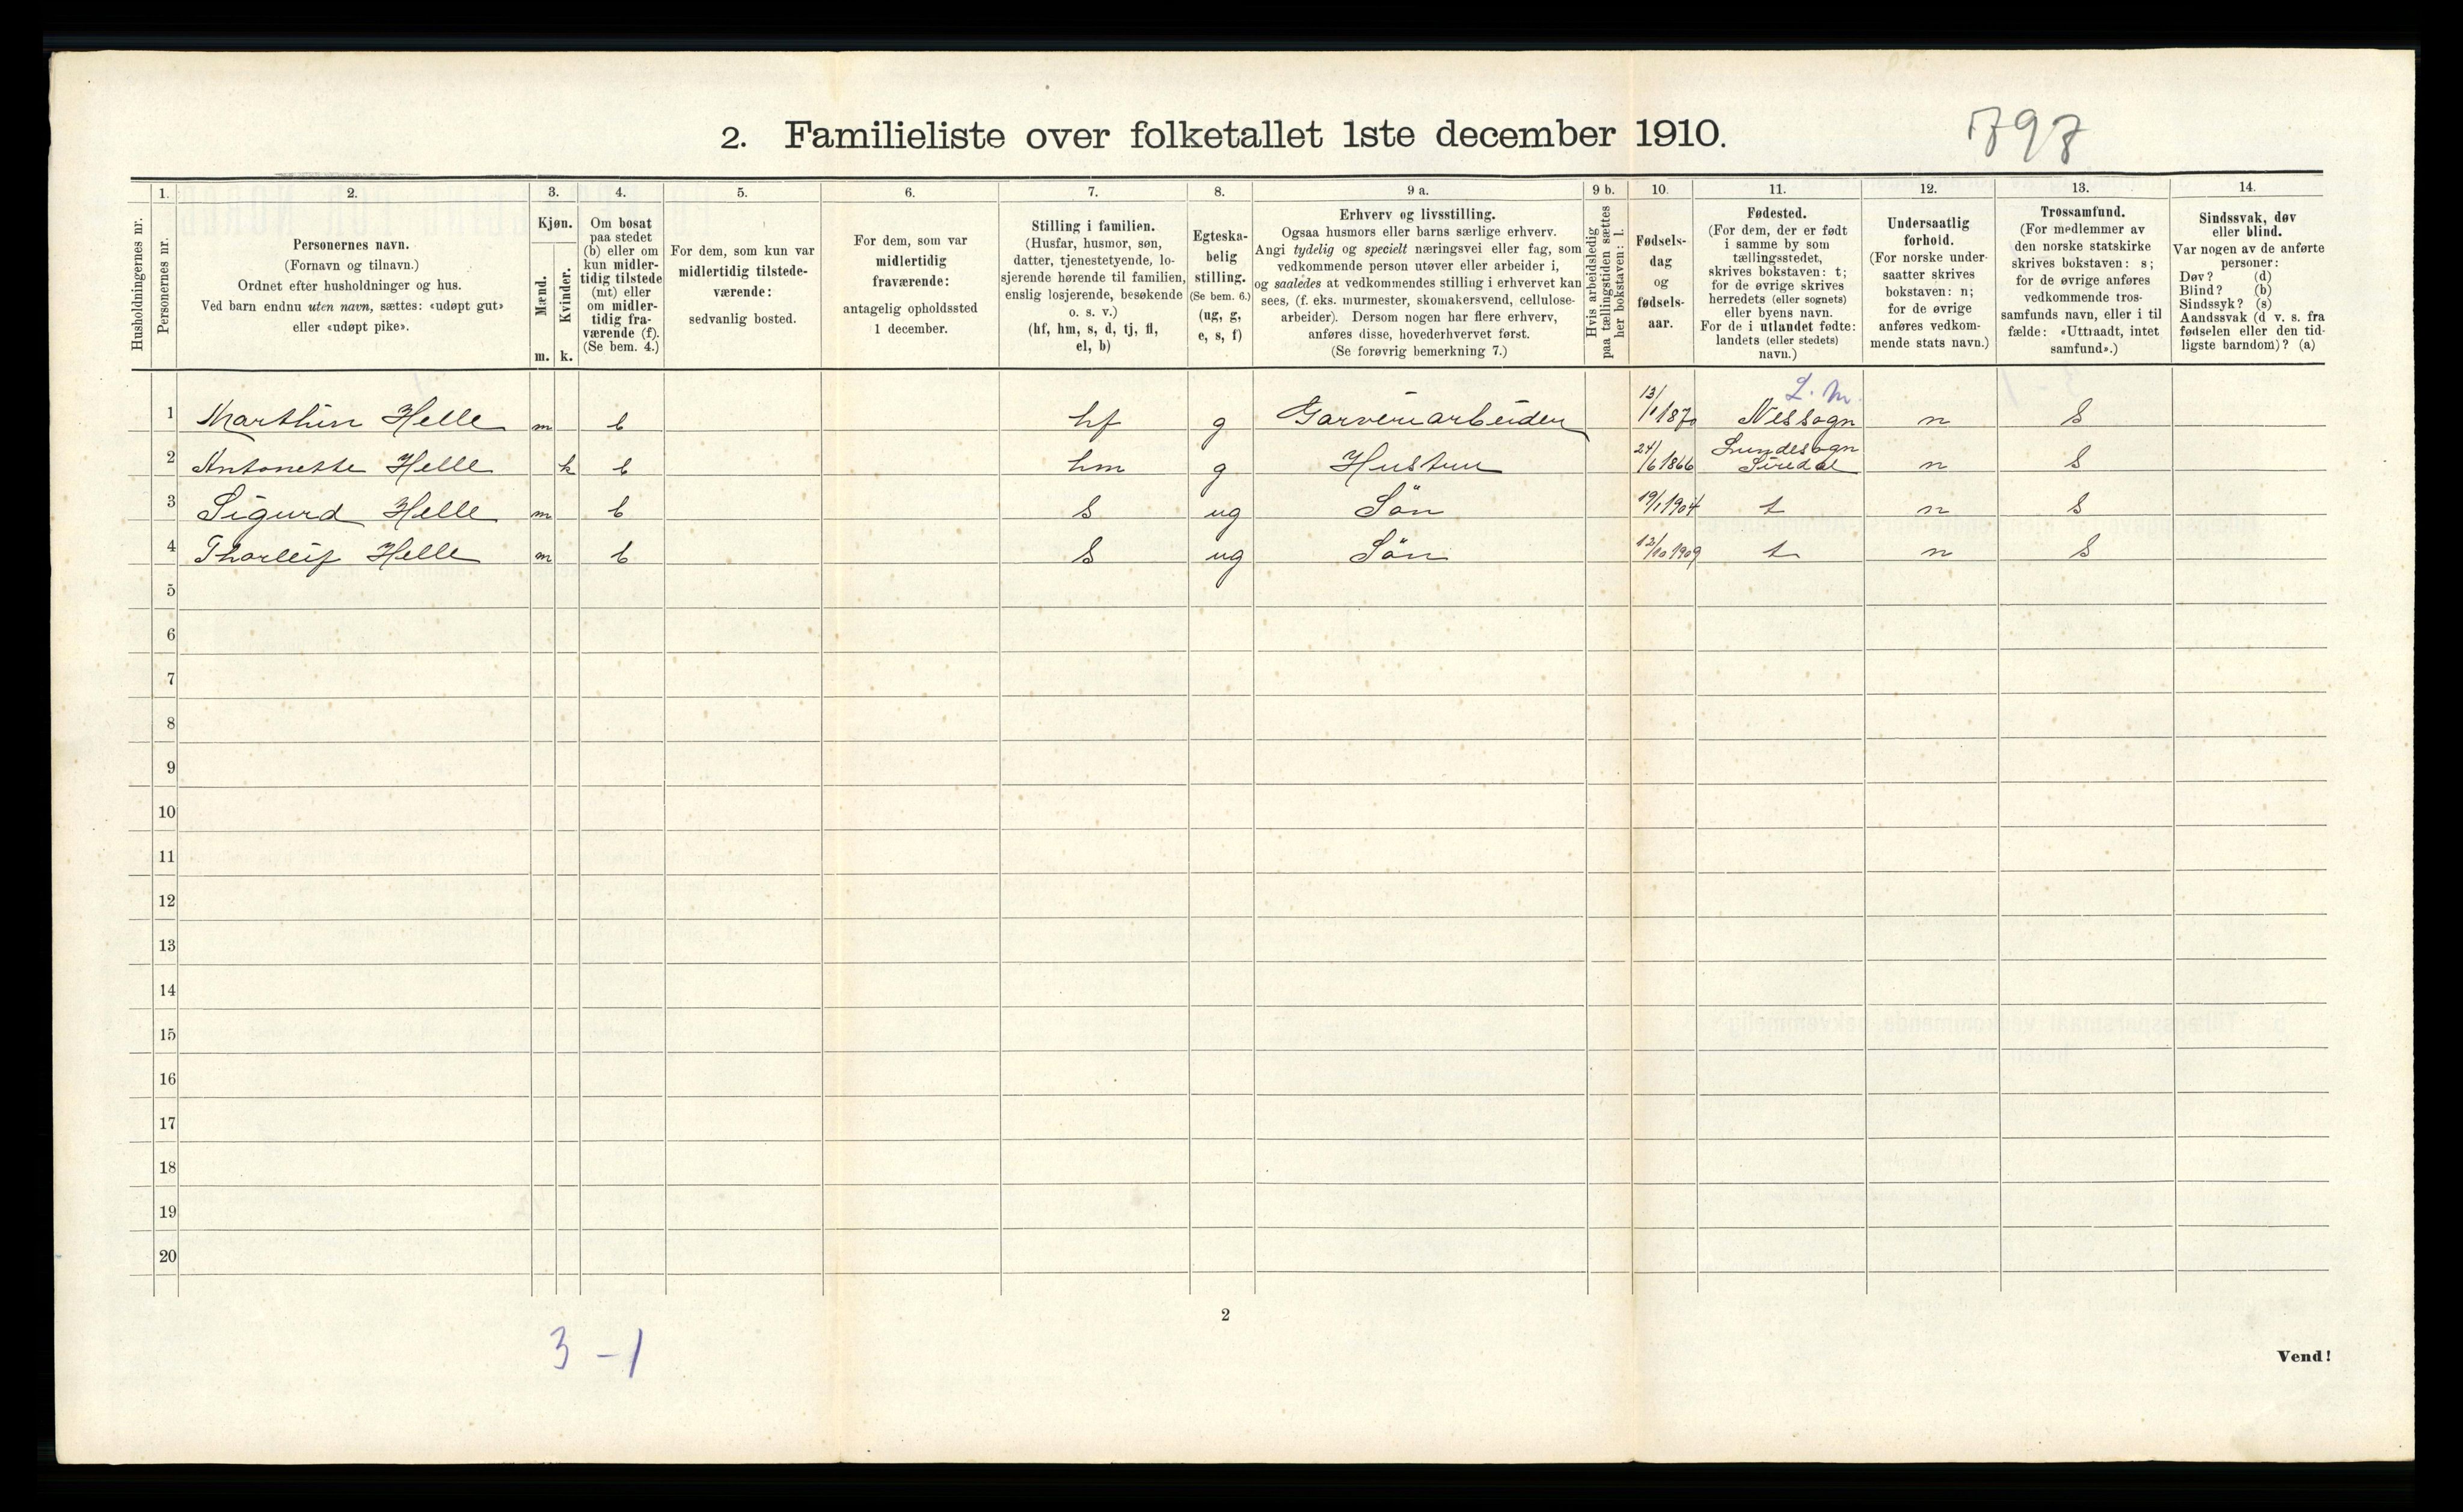 2. Familieliste over folketallet 1ste december 1910.
797
Husholdningernes nr.
1.
Personernes nr.
2.
Personernes navn.
(Fornavn og tilnavn.)
Ordnet efter husholdninger og hus.
Ved barn endnu uten navn, sættes: «udøpt gut»
eller «udøpt pike».
3.
Kjøn.
Mænd.
Kvinder.
m. k.
4.
Om bosat
paa stedet
(b) eller om
kun midler-
tidig tilstede
(mt) eller
om midler-
tidig fra-
værende (f).
(Se bem. 4.)
5.
For dem, som kun var
midlertidig tilstede-
værende:
sedvanlig bosted.
6.
For dem, som var
midlertidig
fraværende:
antagelig opholdssted
1 december.
7.
Stilling i familien.
(Husfar, husmor, søn,
datter, tjenestetyende, lo-
sjerende hørende til familien,
enslig losjerende, besøkende
o. s. v.)
(hf, hm, s, d, tj, fl,
el, b)
8.
Egteska-
belig
stilling.
(Se bem. 6.)
(ug, g,
e, s, f)
9 a.
Erhverv og livsstilling.
Ogsaa husmors eller barns særlige erhverv.
Angi tydelig og specielt næringsvei eller fag, som
vedkommende person utøver eller arbeider i,
og saaledes at vedkommendes stilling i erhvervet kan
sees, (f. eks. murmester, skomakersvend, cellulose-
arbeider). Dersom nogen har flere erhverv,
anføres disse, hovederhvervet først.
(Se forøvrig bemerkning 7.)
9 b.
Hvis arbeidsledig
paa tællingstiden sættes
her bokstaven: l.
10.
Fødsels-
dag
og
fødsels-
aar.
11.
Fødested.
(For dem, der er født
i samme by som
tællingsstedet,
skrives bokstaven: t;
for de øvrige skrives
herredets (eller sognets)
eller byens navn.
For de i utlandet fødte:
landets (eller stedets)
navn.)
12.
Undersaatlig
forhold.
(For norske under-
saatter skrives
bokstaven: n;
for de øvrige
anføres vedkom-
mende stats navn.)
13.
Trossamfund.
(For medlemmer av
den norske statskirke
skrives bokstaven: s;
for de øvrige anføres
vedkommende tros-
samfunds navn, eller i til
fælde: «Uttraadt, intet
samfund».)
14.
Sindssvak, døv
eller blind.
Var nogen av de anførte
personer:
Døv? (d)
Blind? (b)
Sindssyk? (s)
Aandssvak (d v. s. fra
fødselen eller den tid-
ligste barndom)? (a)
L. M.
1 Marthin Helle m b hf g Garveriarbeider 13/1 1870 Nessogn n S
2 Antonette Helle k b hm g Hustru 24/6 1866 Lundesogn Siredal n S
3 Sigurd Helle m b S ug Sön 19/1 1904 t n S
4 Thorleif Helle m b S ug Sön 12/10 1909 t n S
5
6
7
8
9
10
11
12
13
14
15
16
17
18
19
20
2
3 - 1
Vend!